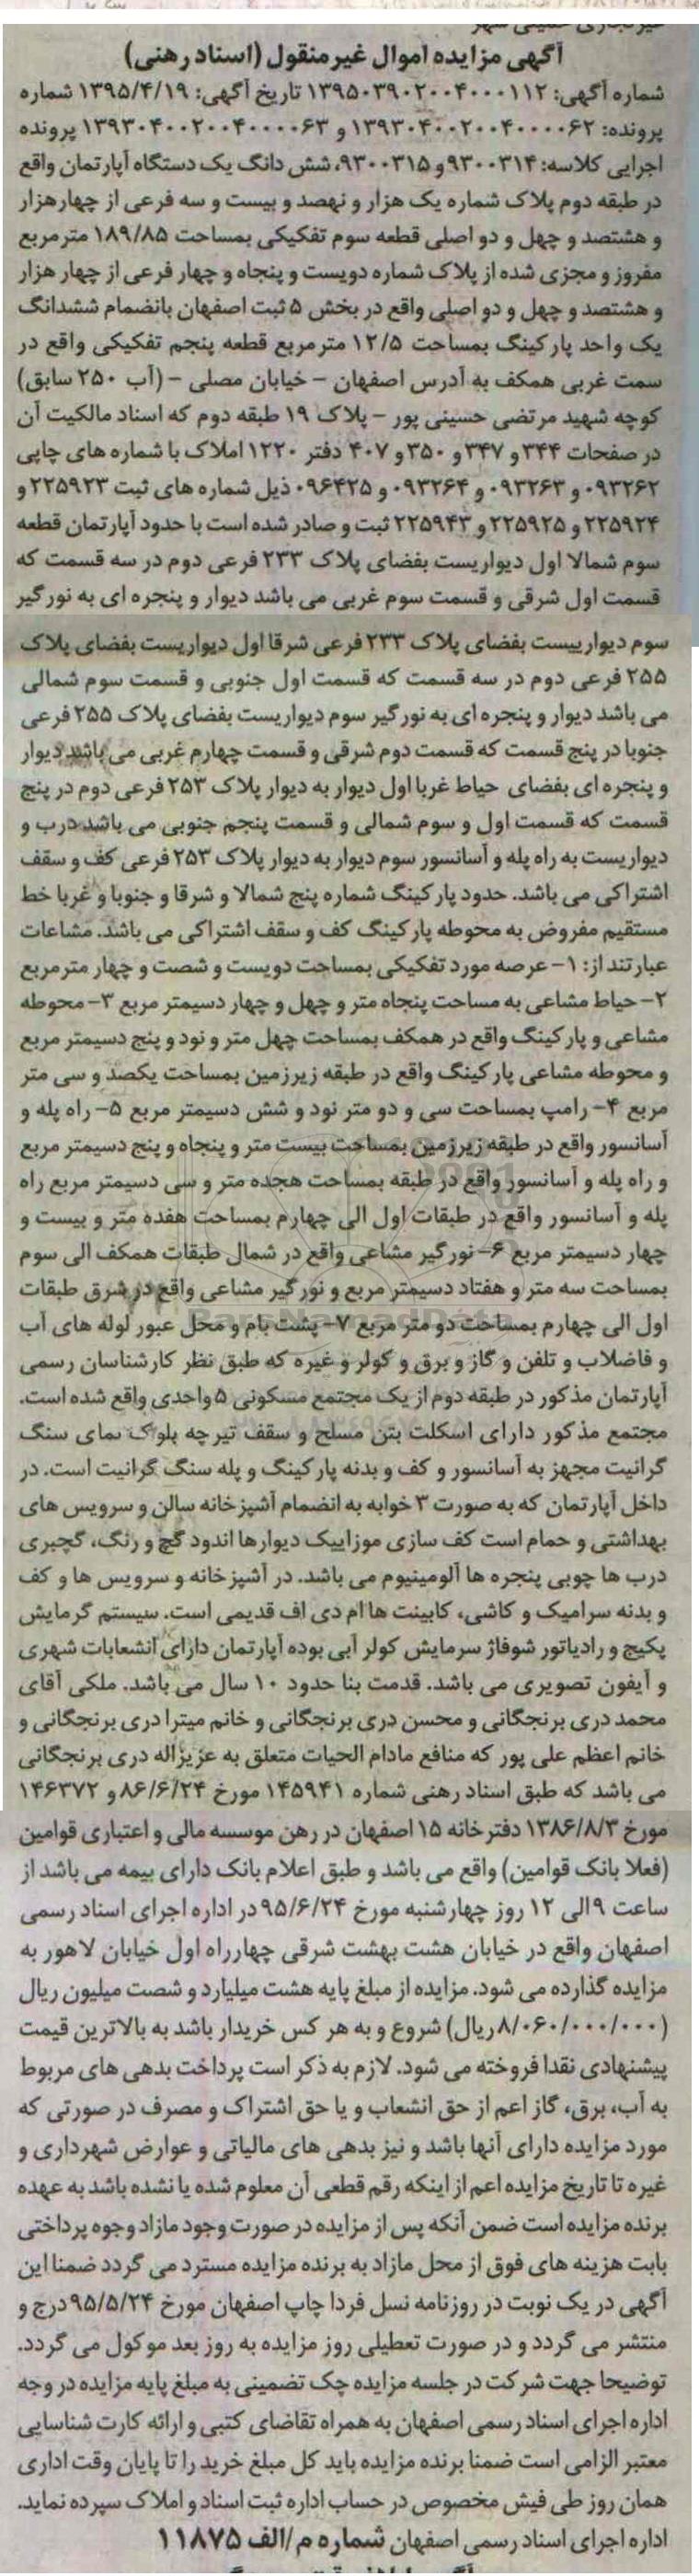 آگهی مزایده اموال غیرمنقول (اسناد رهنی)
شماره آگهی: ۱۳۹۵۰۳۹۰۲۰۰۴۰۰۰۱۱۲ تاریخ آگهی: ۱۳۹۵/۴/۱۹ شماره
پرونده: ۱۳۹۳۰۴۰۰۲۰۰۴۰۰۰۰۶۲ و ۱۳۹۳۰۴۰۰۲۰۰۴۰۰۰۰۶۳ پرونده
اجرایی کلاسه: ۹۳۰۰۳۱۴ و ۹۳۰۰۳۱۵، شش دانگ یک دستگاه آپارتمان واقع
در طبقه دوم پلاک شماره یک هزار و نهصد و بیست و سه فرعی از چهارهزار
و هشتصد و چهل و دو اصلی قطعه سوم تفکیکی بمساحت ۱۸۹/۸۵ مترمربع
مفروز و مجزی شده از پلاک شماره دویست و پنجاه و چهار فرعی از چهار هزار
و هشتصد و چهل و دو اصلی واقع در بخش ۵ ثبت اصفهان بانضمام ششدانگ
یک واحد پارکینگ بمساحت ۱۲/۵ مترمربع قطعه پنجم تفکیکی واقع در
سمت غربی همکف به آدرس اصفهان – خیابان مصلی – (آب ۲۵۰ سابق)
کوچه شهید مرتضی حسینی پور – پلاک ۱۹ طبقه دوم که اسناد مالکیت آن
در صفحات ۳۴۴ و ۳۴۷ و ۳۵۰ و ۴۰۷ دفتر ۱۲۲۰ املاک با شماره های چاپی
۰۹۳۲۶۲ و ۰۹۳۲۶۳ و ۰۹۳۲۶۴ و ۰۹۶۴۲۵ ذیل شماره های ثبت ۲۲۵۹۲۳ و
۲۲۵۹۲۴ و ۲۲۵۹۲۵ و ۲۲۵۹۴۳ ثبت و صادر شده است با حدود آپارتمان قطعه
سوم شمالا اول دیواریست بفضای پلاک ۲۳۳ فرعی دوم در سه قسمت که
قسمت اول شرقی و قسمت سوم غربی می باشد دیوار و پنجره ای به نورگیر
سوم دیوارییست بفضای پلاک ۲۳۳ فرعی شرقا اول دیواریست بفضای پلاک
۲۵۵ فرعی دوم در سه قسمت که قسمت اول جنوبی و قسمت سوم شمالی
می باشد دیوار و پنجره ای به نورگیر سوم دیواریست بفضای پلاک ۲۵۵ فرعی
جنوبا در پنج قسمت که قسمت دوم شرقی و قسمت چهارم غربی می باشد دیوار
و پنجره ای بفضای حیاط غربا اول دیوار به دیوار پلاک ۲۵۳ فرعی دوم در پنج
قسمت که قسمت اول و سوم شمالی و قسمت پنجم جنوبی می باشد درب و
دیواریست به راه پله و آسانسور سوم دیوار به دیوار پلاک ۲۵۳ فرعی کف و سقف
اشتراکی می باشد. حدود پارکینگ شماره پنج شمالا و شرقا و جنوبا و غربا خط
مستقیم مفروض به محوطه پارکینگ کف و سقف اشتراکی می باشد. مشاعات
عبارتند از: ۱– عرصه مورد تفکیکی بمساحت دویست و شصت و چهار مترمربع
۲– حیاط مشاعی به مساحت پنجاه متر و چهل و چهار دسیمتر مربع ۳– محوطه
مشاعی و پارکینگ واقع در همکف بمساحت چهل متر و نود و پنج دسیمتر مربع
و محوطه مشاعی پارکینگ واقع در طبقه زیرزمین بمساحت یکصد و سی متر
مربع ۴– رامپ بمساحت سی و دو متر نود و شش دسیمتر مربع ۵– راه پله و
آسانسور واقع در طبقه زیرزمین بمساحت بیست متر و پنجاه و پنج دسیمتر مربع
و راه پله و آسانسور واقع در طبقه بمساحت هجده متر و سی دسیمتر مربع راه
پله و آسانسور واقع در طبقات اول الی چهارم بمساحت هفده متر و بیست و
چهار دسیمتر مربع ۶– نورگیر مشاعی واقع در شمال طبقات همکف الی سوم
بمساحت سه متر و هفتاد دسیمتر مربع و نورگیر مشاعی واقع در شرق طبقات
اول الی چهارم بمساحت دو متر مربع ۷– پشت بام و محل عبور لوله های آب
و فاضلاب و تلفن و گاز و برق و کولر و غیره که طبق نظر کارشناسان رسمی
آپارتمان مذکور در طبقه دوم از یک مجتمع مسکونی ۵ واحدی واقع شده است.
مجتمع مذکور دارای اسکلت بتن مسلح و سقف تیرچه بلوک نمای سنگ
گرانیت مجهز به آسانسور و کف و بدنه پارکینگ و پله سنگ گرانیت است. در
داخل آپارتمان که به صورت ۳ خوابه به انضمام آشپزخانه سالن و سرویس های
بهداشتی و حمام است کف سازی موزاییک دیوارها اندود گچ و رنگ، گچبری
درب ها چوبی پنجره ها آلومینیوم می باشد. در آشپزخانه و سرویس ها و کف
و بدنه سرامیک و کاشی، کابینت ها ام دی اف قدیمی است. سیستم گرمایش
پکیج و رادیاتور شوفاژ سرمایش کولر آبی بوده آپارتمان دارای انشعابات شهری
و آیفون تصویری می باشد. قدمت بنا حدود ۱۰ سال می باشد. ملکی آقای
محمد دری برنجگانی و محسن دری برنجگانی و خانم میترا دری برنجگانی و
خانم اعظم علی پور که منافع مادام الحیات متعلق به عزیزاله دری برنجگانی
می باشد که طبق اسناد رهنی شماره ۱۴۵۹۴۱ مورخ ۸۶/۶/۲۴ و ۱۴۶۳۷۲
مورخ ۱۳۸۶/۸/۳ دفترخانه ۱۵ اصفهان در رهن موسسه مالی و اعتباری قوامین
(فعلا بانک قوامین) واقع می باشد و طبق اعلام بانک دارای بیمه می باشد از
ساعت ۹ الی ۱۲ روز چهارشنبه مورخ ۹۵/۶/۲۴ در اداره اجرای اسناد رسمی
اصفهان واقع در خیابان هشت بهشت شرقی چهارراه اول خیابان لاهور به
مزایده گذارده می شود. مزایده از مبلغ پایه هشت میلیارد و شصت میلیون ریال
(۸/۰۶۰/۰۰۰/۰۰۰ ریال) شروع و به هر کس خریدار باشد به بالاترین قیمت
پیشنهادی نقدا فروخته می شود. لازم به ذکر است پرداخت بدهی های مربوط
به آب، برق، گاز اعم از حق انشعاب و یا حق اشتراک و مصرف در صورتی که
مورد مزایده دارای آنها باشد و نیز بدهی های مالیاتی و عوارض شهرداری و
غیره تا تاریخ مزایده اعم از اینکه رقم قطعی آن معلوم شده یا نشده باشد به عهده
برنده مزایده است ضمن آنکه پس از مزایده در صورت وجود مازاد وجوه پرداختی
بابت هزینه های فوق از محل مازاد به برنده مزایده مسترد می گردد ضمنا این
آگهی در یک نوبت در روزنامه نسل فردا چاپ اصفهان مورخ ۹۵/۵/۲۴ درج و
منتشر می گردد و در صورت تعطیلی روز مزایده به روز بعد موکول می گردد.
توضیحا جهت شرکت در جلسه مزایده چک تضمینی به مبلغ پایه مزایده در وجه
اداره اجرای اسناد رسمی اصفهان به همراه تقاضای کتبی و ارائه کارت شناسایی
معتبر الزامی است ضمنا برنده مزایده باید کل مبلغ خرید را تا پایان وقت اداری
همان روز طی فیش مخصوص در حساب اداره ثبت اسناد و املاک سپرده نماید.
اداره اجرای اسناد رسمی اصفهان شماره م/الف ۱۱۸۷۵